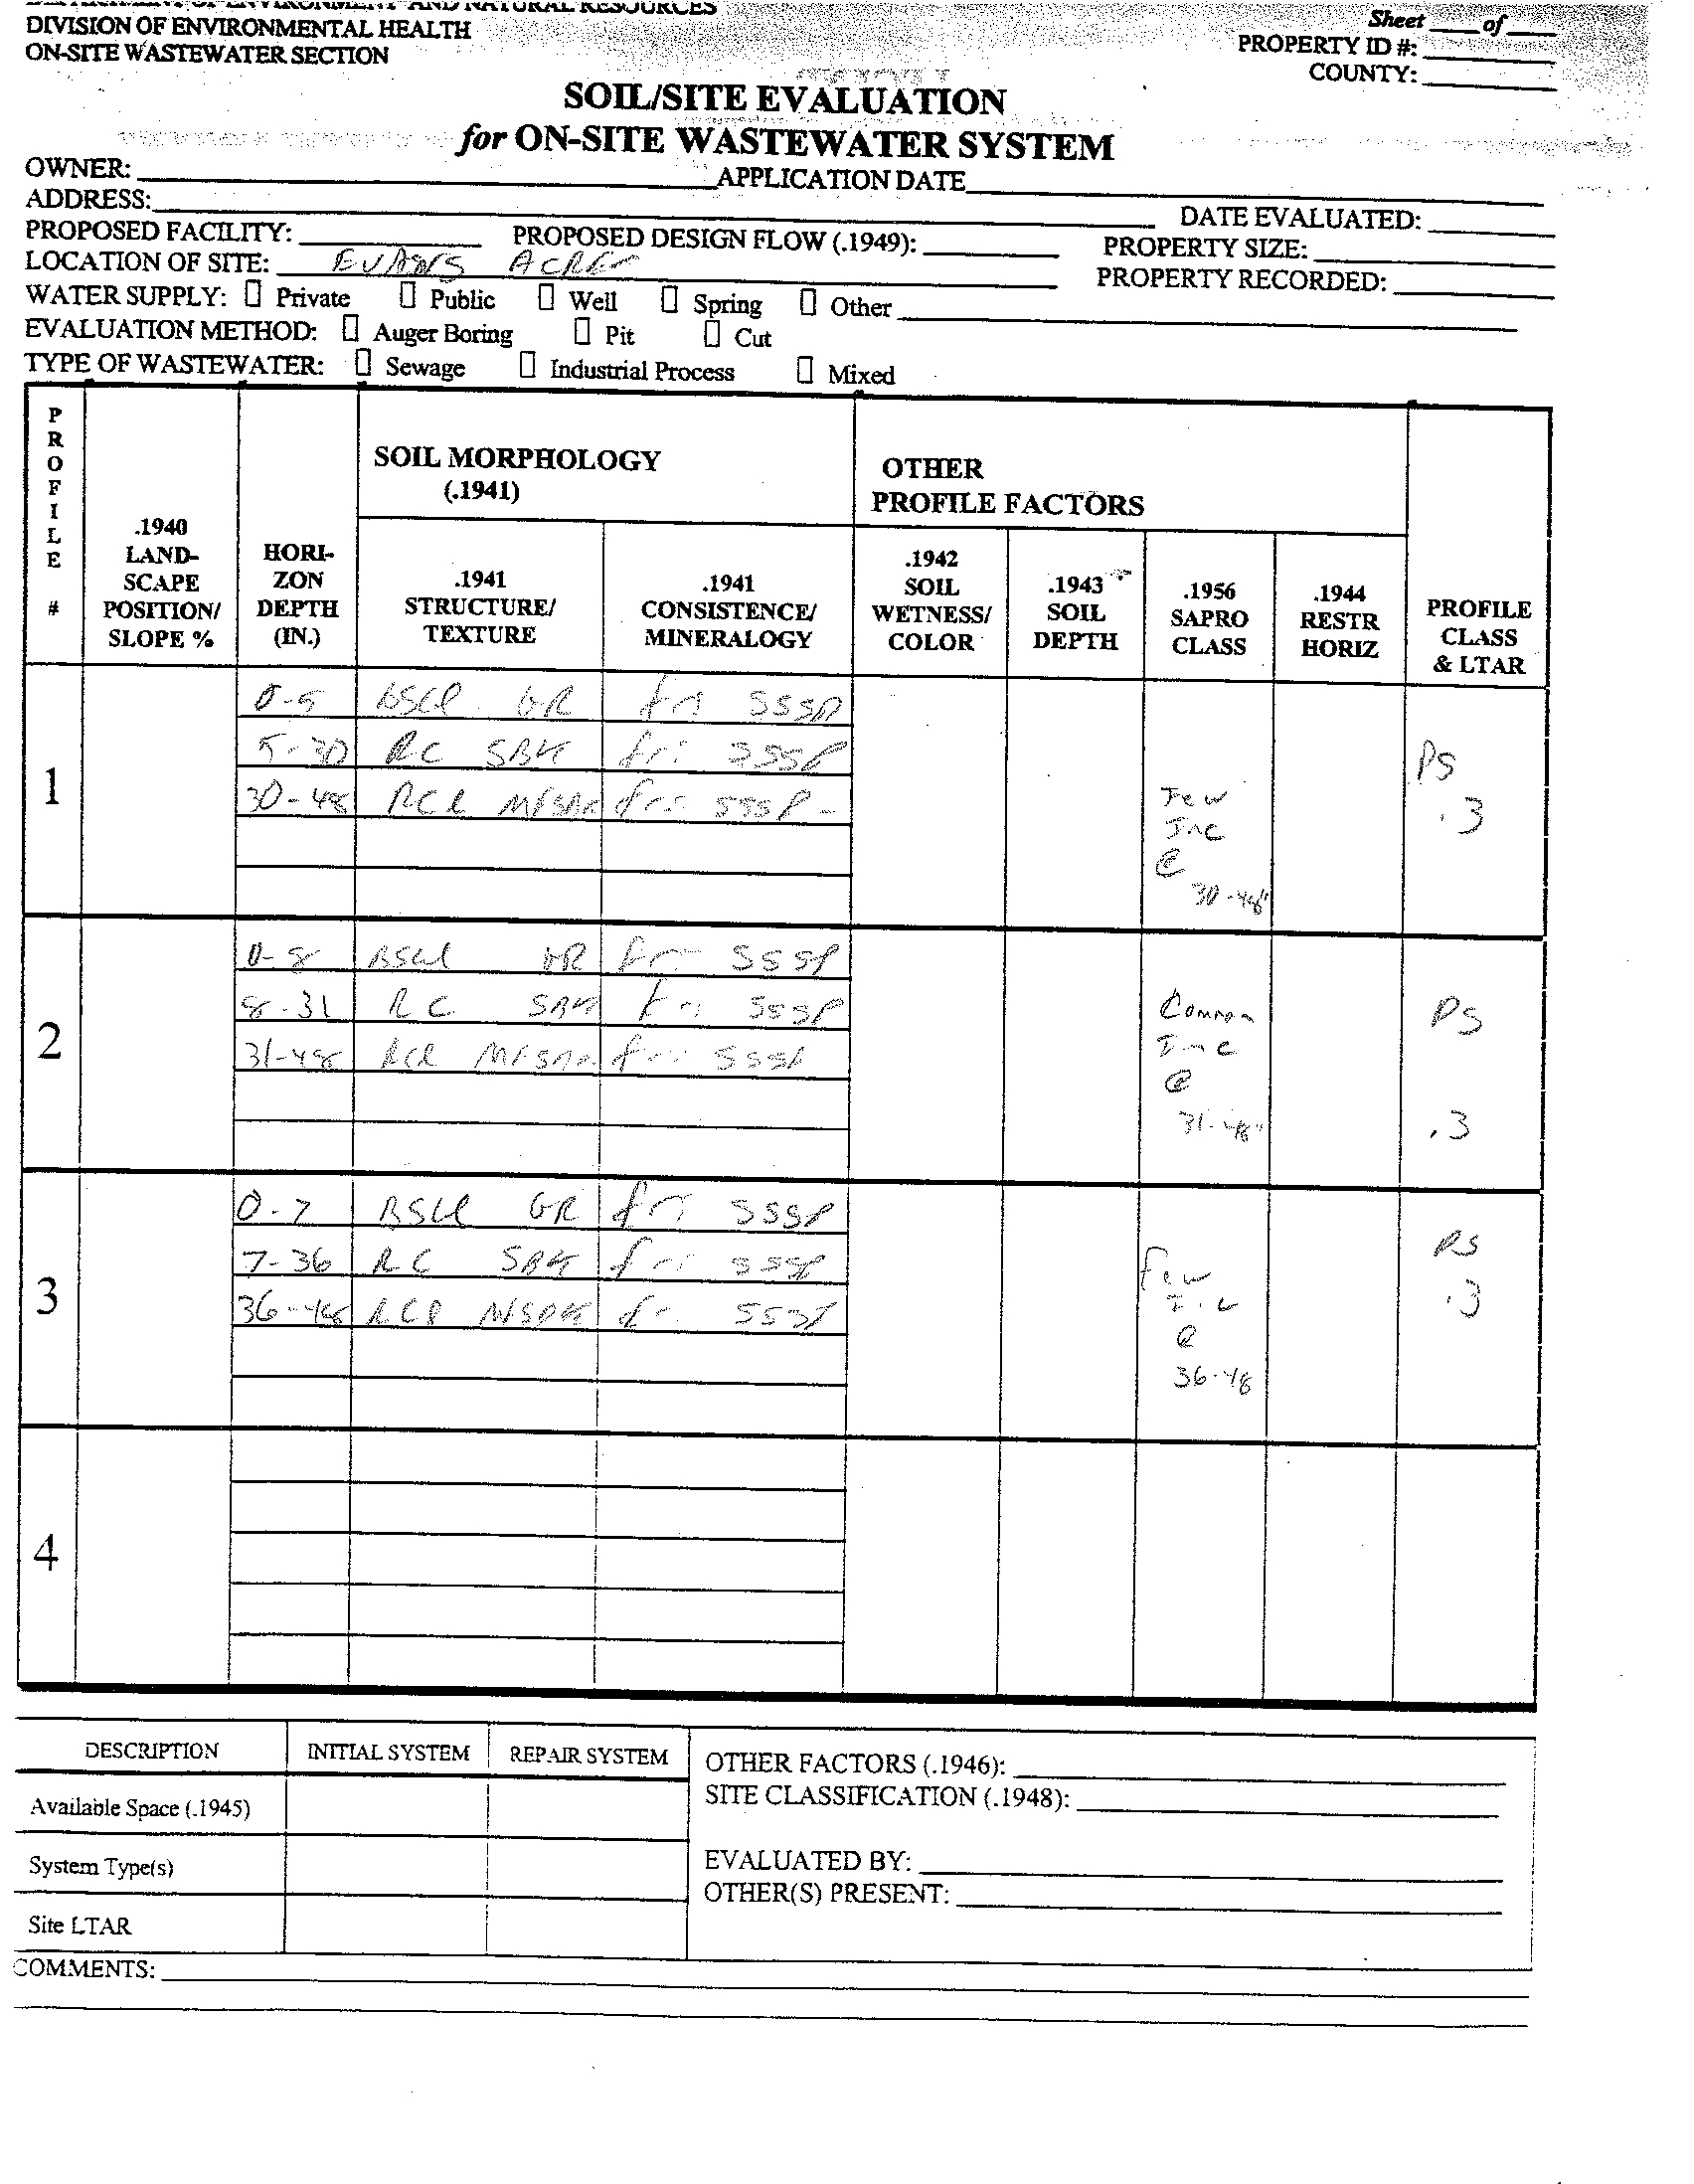 DEPARTMENT OF ENVIRONMENT AND NATURAL RESOURCES
DIVISION OF ENVIRONMENTAL HEALTH
ON-SITE WASTEWATER SECTION
Sheet ____ of ____
PROPERTY ID #:
COUNTY:
SOIL/SITE EVALUATION
for ON-SITE WASTEWATER SYSTEM
OWNER: APPLICATION DATE
ADDRESS: DATE EVALUATED:
PROPOSED FACILITY: PROPOSED DESIGN FLOW (.1949): PROPERTY SIZE:
LOCATION OF SITE: EVANS ACRES PROPERTY RECORDED:
WATER SUPPLY: Private Public Well Spring Other
EVALUATION METHOD: Auger Boring Pit Cut
TYPE OF WASTEWATER: Sewage Industrial Process Mixed
PROFILE #
.1940 LAND-SCAPE POSITION/ SLOPE %
HORI-ZON DEPTH (IN.)
SOIL MORPHOLOGY (.1941)
.1941 STRUCTURE/ TEXTURE
.1941 CONSISTENCE/ MINERALOGY
OTHER PROFILE FACTORS
.1942 SOIL WETNESS/ COLOR
.1943 SOIL DEPTH
.1956 SAPRO CLASS
.1944 RESTR HORIZ
PROFILE CLASS & LTAR
1
0-5 BSCL GR fri SSSP
5-30 RC SBK fri SSSP
30-48 RCL fri SSSP
Few Inc @ 30-48"
PS .3
2
0-8 BSCL GR fri SSSP
8-31 RC SBK fri SSSP
31-48 RCL fri SSSP
Common Inc @ 31-48"
PS .3
3
0-7 BSCL GR fri SSSP
7-36 RC SBK fri SSSP
36-48 RCL fri SSSP
Few Inc @ 36-48
PS .3
4
DESCRIPTION INITIAL SYSTEM REPAIR SYSTEM
Available Space (.1945)
System Type(s)
Site LTAR
OTHER FACTORS (.1946):
SITE CLASSIFICATION (.1948):
EVALUATED BY:
OTHER(S) PRESENT:
COMMENTS: